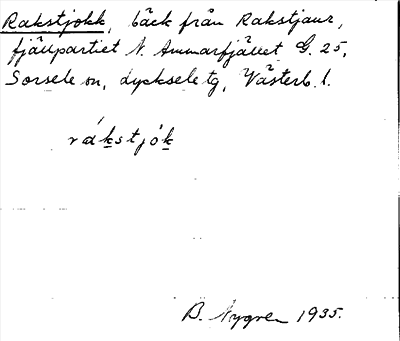 Rakstjokk, bäck från Rakstjaur,
fjällpartiet N. Ammarfjället G. 25,
Sorsele sn, Lycksele tg, Västerb. l.
rákstjók
B. Nygren 1935.